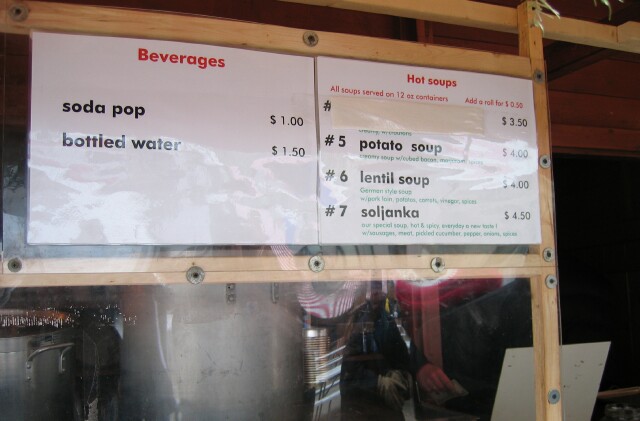 Beverages
soda pop $ 1.00
bottled water $ 1.50
Hot soups
All soups served on 12 oz containers Add a roll for $ 0.50
# $ 3.50
# 5 potato soup $ 4.00
creamy soup w/cubed bacon, marjoram, spices
# 6 lentil soup $ 4.00
German style soup
w/pork loin, potatos, carrots, vinegar, spices
# 7 soljanka $ 4.50
our special soup, hot & spicy, everyday a new taste !
w/sausages, meat, pickled cucumber, pepper, onions, spices